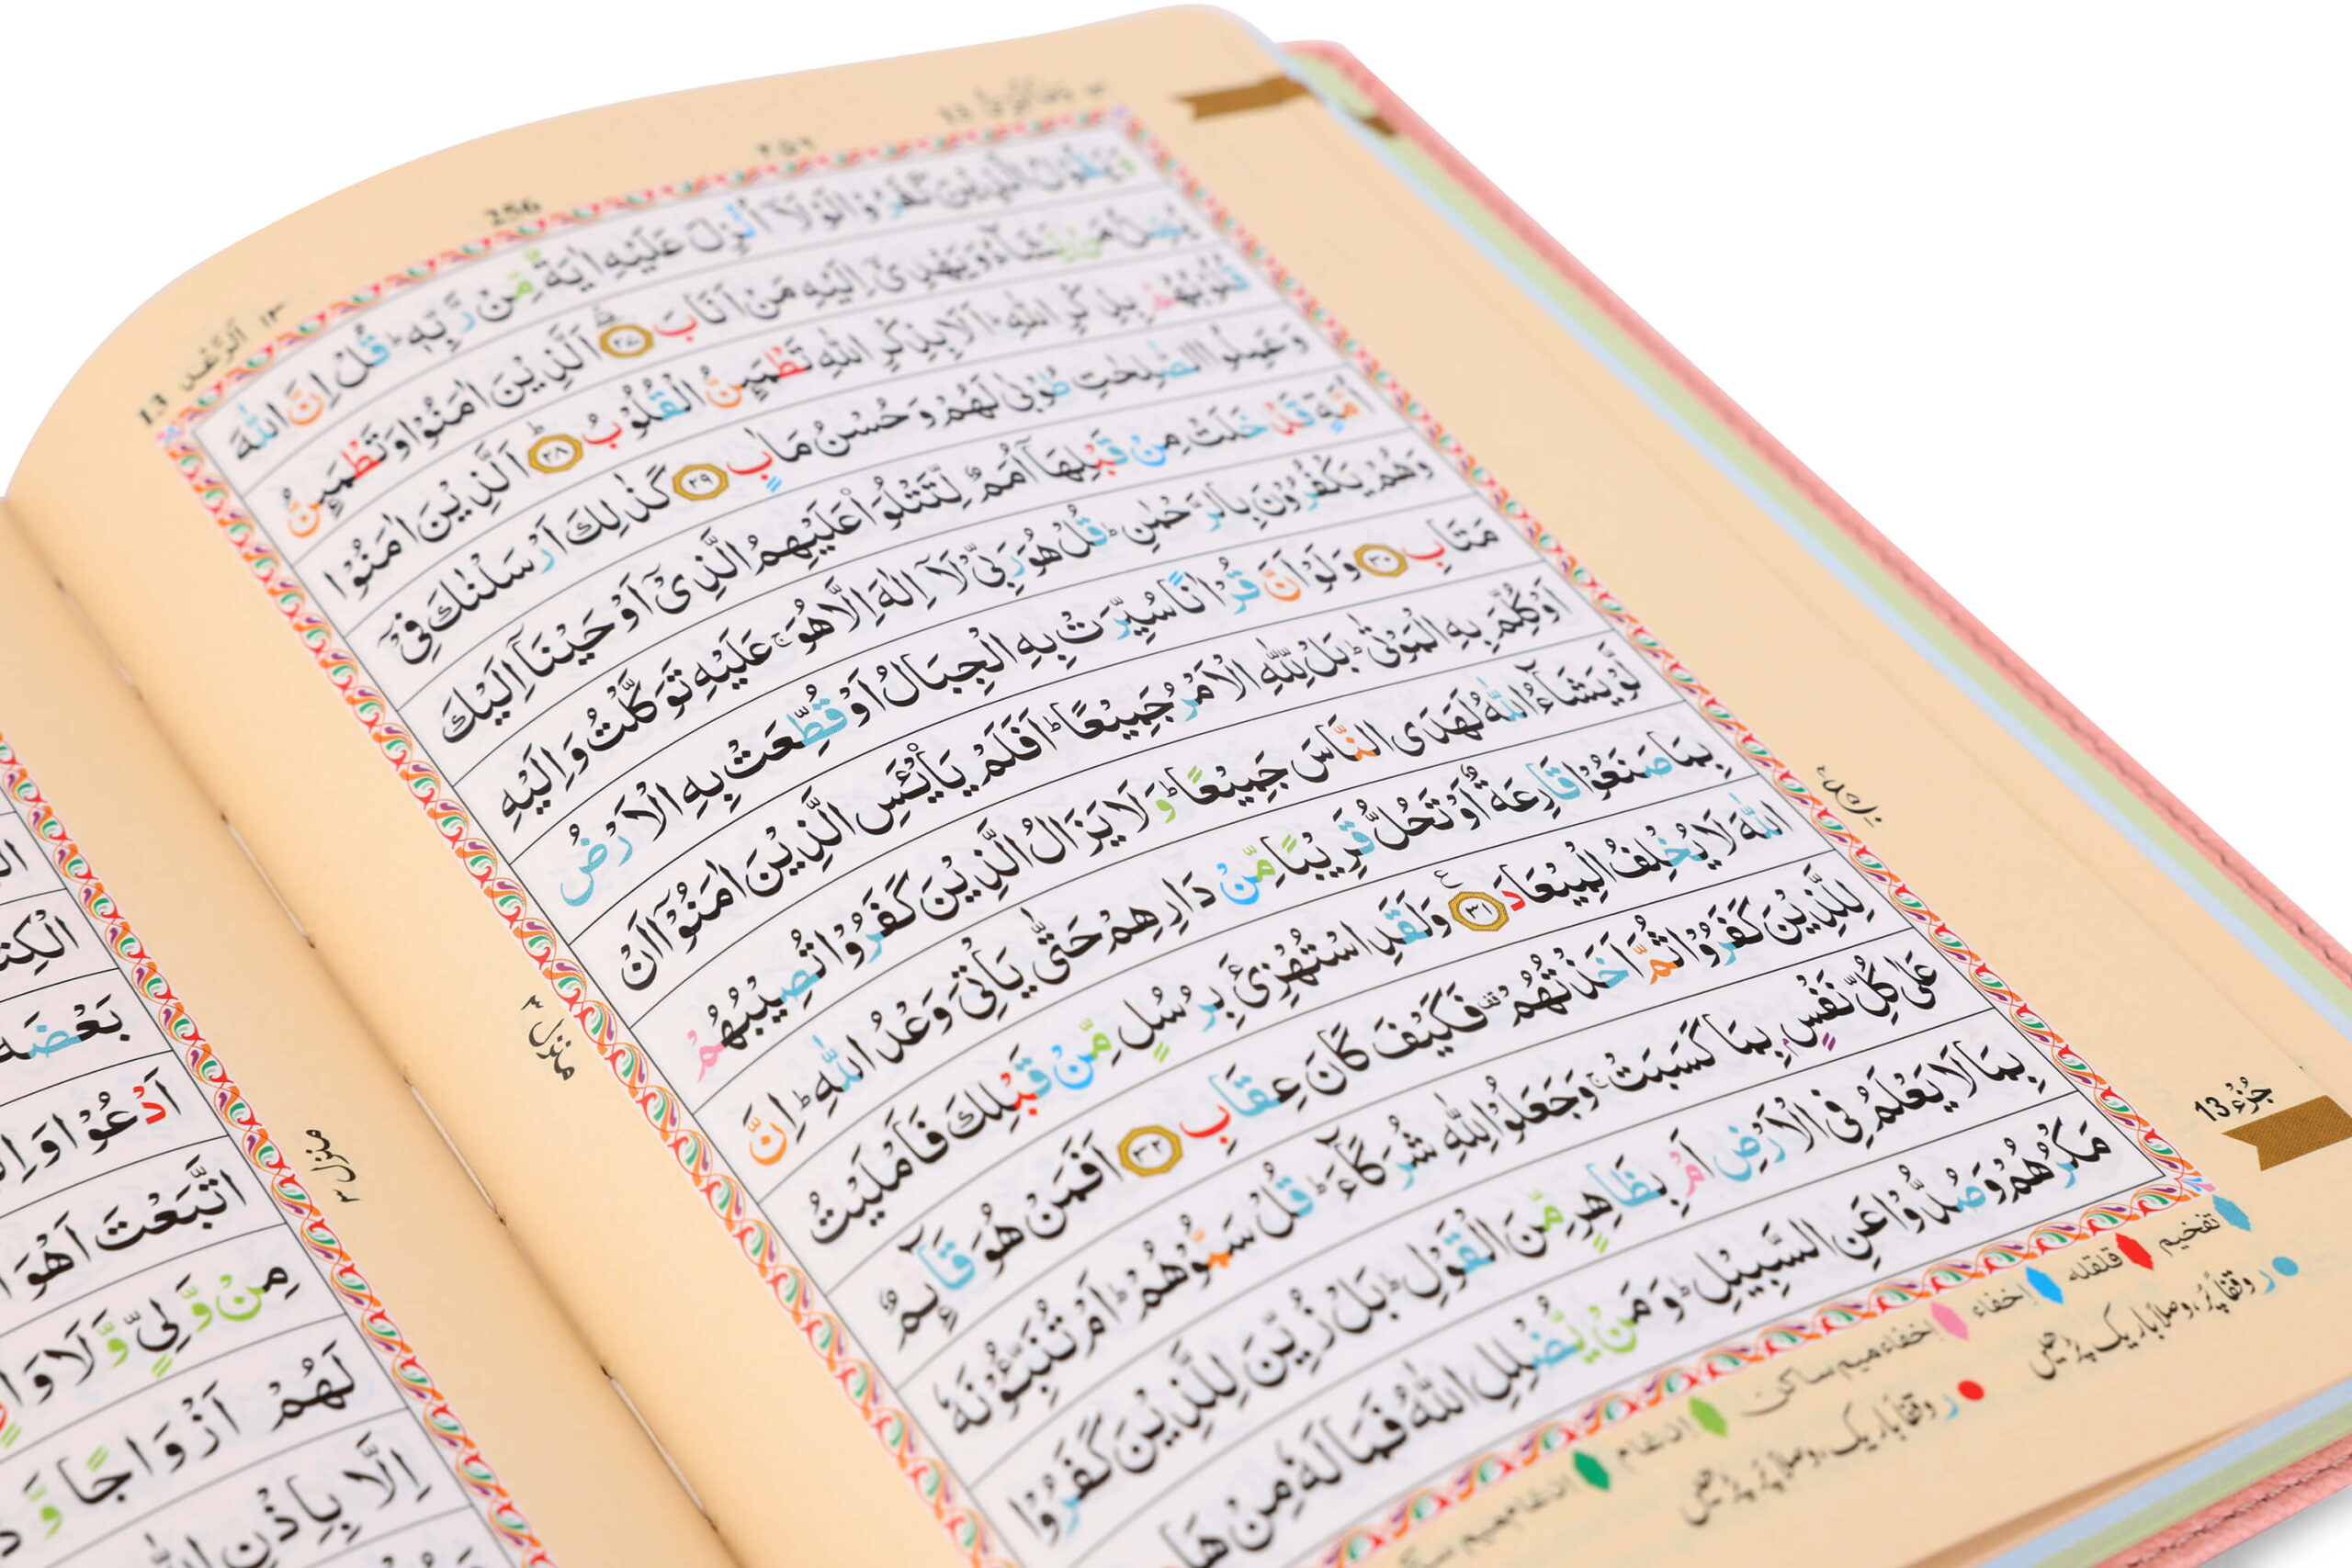 256
۲۵۶
١٣ اَلرَّعْد 13
وَيَقُوْلُ الَّذِيْنَ كَفَرُوْا لَوْلَاۤ اُنْزِلَ عَلَيْهِ اٰيَةٌ مِّنْ رَّبِّهٖ ؕ قُلْ اِنَّ اللّٰهَ
يُضِلُّ مَنْ يَّشَآءُ وَيَهْدِىْۤ اِلَيْهِ مَنْ اَنَابَ ۖ ﴿۲۷﴾ اَلَّذِيْنَ اٰمَنُوْا وَتَطْمَىِٕنُّ
قُلُوْبُهُمْ بِذِكْرِ اللّٰهِ ؕ اَلَا بِذِكْرِ اللّٰهِ تَطْمَىِٕنُّ الْقُلُوْبُ ؕ ﴿۲۸﴾ اَلَّذِيْنَ اٰمَنُوْا
وَعَمِلُوا الصّٰلِحٰتِ طُوْبٰى لَهُمْ وَحُسْنُ مَاٰبٍ ﴿۲۹﴾ كَذٰلِكَ اَرْسَلْنٰكَ فِىْۤ
اُمَّةٍ قَدْ خَلَتْ مِنْ قَبْلِهَاۤ اُمَمٌ لِّتَتْلُوَا۟ عَلَيْهِمُ الَّذِىْۤ اَوْحَيْنَاۤ اِلَيْكَ
وَهُمْ يَكْفُرُوْنَ بِالرَّحْمٰنِ ؕ قُلْ هُوَ رَبِّىْ لَاۤ اِلٰهَ اِلَّا هُوَ ۚ عَلَيْهِ تَوَكَّلْتُ وَاِلَيْهِ
مَتَابِ ﴿۳۰﴾ وَلَوْ اَنَّ قُرْاٰنًا سُيِّرَتْ بِهِ الْجِبَالُ اَوْ قُطِّعَتْ بِهِ الْاَرْضُ
اَوْ كُلِّمَ بِهِ الْمَوْتٰى ؕ بَلْ لِّلّٰهِ الْاَمْرُ جَمِيْعًا ؕ اَفَلَمْ يَا۟يْـَٔسِ الَّذِيْنَ اٰمَنُوْۤا اَنْ
لَّوْ يَشَآءُ اللّٰهُ لَهَدَى النَّاسَ جَمِيْعًا ؕ وَلَا يَزَالُ الَّذِيْنَ كَفَرُوْا تُصِيْبُهُمْ
بِمَا صَنَعُوْا قَارِعَةٌ اَوْ تَحُلُّ قَرِيْبًا مِّنْ دَارِهِمْ حَتّٰى يَاْتِىَ وَعْدُ اللّٰهِ ؕ اِنَّ
اللّٰهَ لَا يُخْلِفُ الْمِيْعَادَ ﴿۳۱﴾ ع وَلَقَدِ اسْتُهْزِئَ بِرُسُلٍ مِّنْ قَبْلِكَ فَاَمْلَيْتُ
لِلَّذِيْنَ كَفَرُوْا ثُمَّ اَخَذْتُهُمْ قف فَكَيْفَ كَانَ عِقَابِ ﴿۳۲﴾ اَفَمَنْ هُوَ قَآىِٕمٌ
عَلٰى كُلِّ نَفْسٍۢ بِمَا كَسَبَتْ ۚ وَجَعَلُوْا لِلّٰهِ شُرَكَآءَ ؕ قُلْ سَمُّوْهُمْ ؕ اَمْ تُنَبِّـُٔوْنَهٗ
بِمَا لَا يَعْلَمُ فِى الْاَرْضِ اَمْ بِظَاهِرٍ مِّنَ الْقَوْلِ ؕ بَلْ زُيِّنَ لِلَّذِيْنَ كَفَرُوْا
مَكْرُهُمْ وَصُدُّوْا عَنِ السَّبِيْلِ ؕ وَمَنْ يُّضْلِلِ اللّٰهُ فَمَا لَهٗ مِنْ هَا
منزل ۳
جُزْء 13
تفخیم
قلقله
إخفاء
إخفاء میم ساکن
ادغام
ادغام میم
ر وقفاً پُر، وصلاً باریک پڑھیں
ر وقفاً باریک، وصلاً پُر پڑھیں
الْكِتٰ
بَعْضَهٗ
اَدْعُوْا وَاِلَ
اتَّبَعْتَ اَهْوَا
مِنْ وَّلِىٍّ وَّلَا وَا
لَهُمْ اَزْوَاجًا وَّ
اِلَّا بِاِذْنِ اللّٰ
منزل ۳